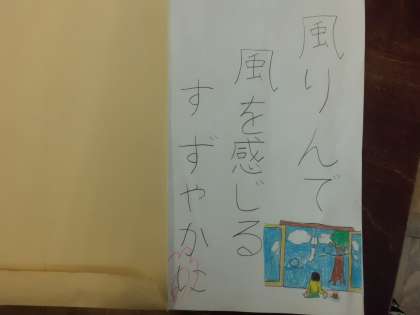 風りんで
風を感じる
すずやかに